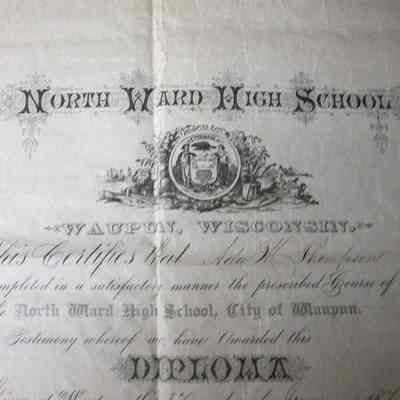 North Ward High School
Waupun, Wisconsin.
This Certifies that Ada W. Thompson
completed in a satisfactory manner the prescribed Course of
North Ward High School, City of Waupun.
Testimony whereof we have Awarded this
DIPLOMA